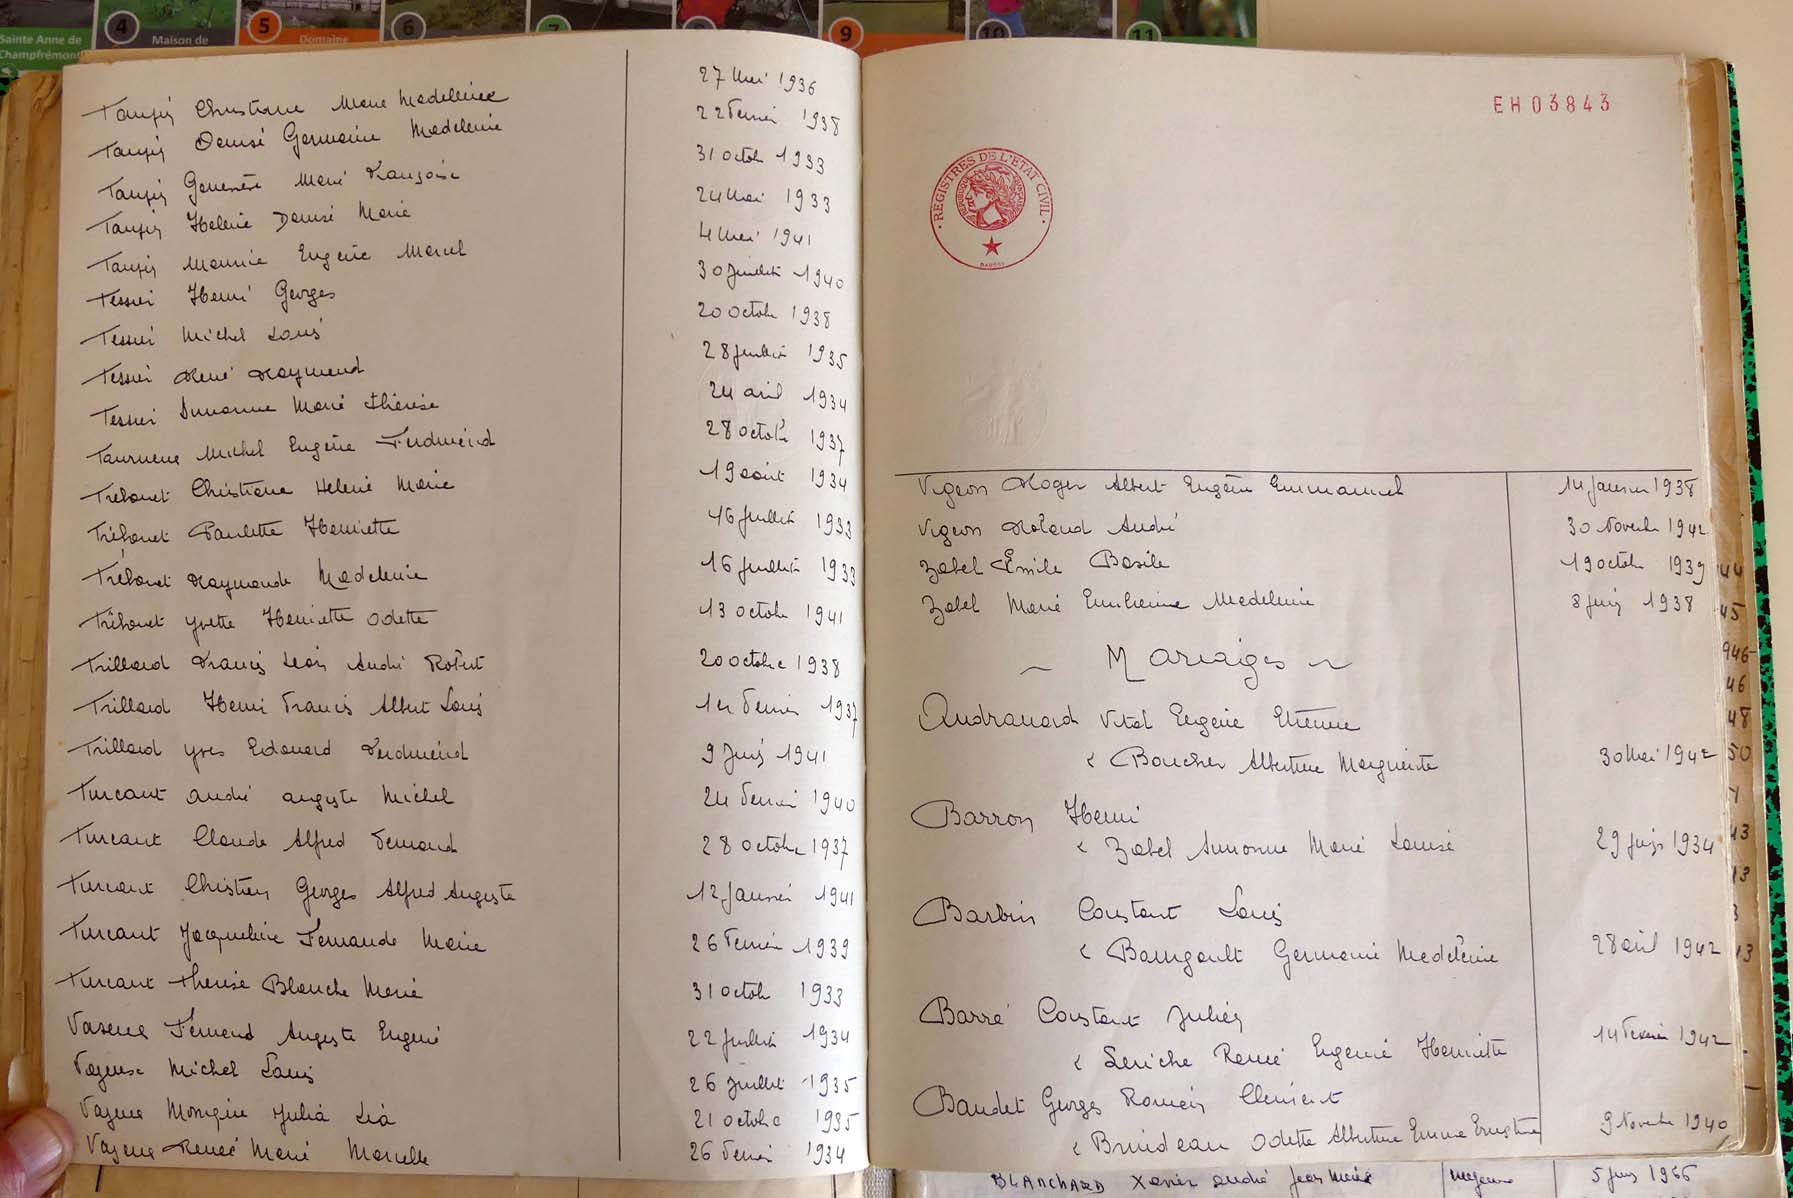 4
5
6
7
9
10
11
Sainte Anne de
Champfrémont
Maison de
Domaine
Taupin Christiane Marie Madeleine 27 Mai 1936
Taupin Denise Germaine Madeleine 22 Février 1938
Taupin Geneviève Marie Françoise 31 octobre 1933
Taupin Hélène Denise Marie 24 Mai 1933
Taupin Maurice Eugène Marcel 4 Mai 1941
Tessier Henri Georges 30 juillet 1940
Tessier Michel Louis 20 octobre 1938
Tessier René Raymond 28 juillet 1935
Tessier Suzanne Marie Thérèse 24 avril 1934
Michel Eugène Ferdinand 28 octobre 1937
Tréhoret Christiane Hélène Marie 19 août 1934
Tréhoret Paulette Henriette 16 juillet 1933
Tréhoret Raymonde Madeleine 16 juillet 1933
Tréhoret Yvette Henriette Odette 13 octobre 1941
Trillard Francis Léon André Robert 20 octobre 1938
Trillard Henri Francis Albert Louis 1er Février 1937
Trillard Yves Edouard Ferdinand 9 juin 1941
Turcant André Auguste Michel 24 Février 1940
Turcant Claude Alfred Fernand 28 octobre 1937
Turcant Christian Georges Alfred Auguste 12 Janvier 1941
Turcant Jacqueline Fernande Marie 26 Février 1939
Turcant Thérèse Blanche Marie 31 octobre 1933
Fernand Auguste Eugène 22 juillet 1934
Michel Louis 26 juillet 1935
Monique Julia Léa 21 octobre 1935
Renée Marie Marcelle 26 Février 1934
EH03843
REGISTRES DE L'ETAT CIVIL
Vigeon Roger Albert Eugène Emmanuel 14 Janvier 1938
Vigeon Roland André 30 Novembre 1942
Zabel Emile Basile 19 octobre 1939
Zabel Marie Emilienne Madeleine 8 juin 1938
~ Mariages ~
Vital Eugène Etienne
< Boucher Albertine Marguerite 30 Mai 1942
Barron Henri
< Zabel Suzanne Marie Louise 29 juin 1934
Barbin Constant Louis
< Bourgault Germaine Madeleine 28 avril 1942
Barré Constant Julien
< Leriche Renée Eugénie Henriette 14 Février 1942
Baudet Georges Romain Clément
< Bruneau Odette Albertine Emma Ernestine 9 Novembre 1940
44
45
946
46
48
50
43
13
3
13
BLANCHARD Xavier André Jean Marie majeur 5 juin 1966